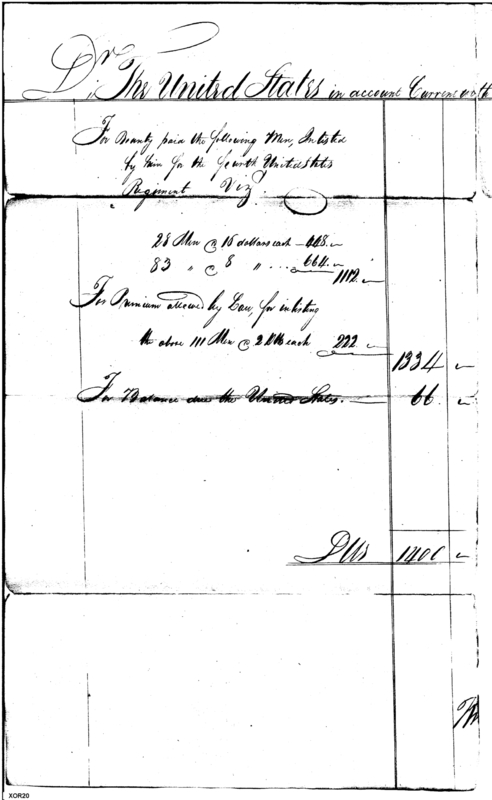 Dr. The United States in account Current with
For Bounty paid the following Men, Inlisted
by him for the fourth United States
Regiment Viz.
28 Men @ 16 dollars each - 448. "
83 " @ 8 " ... 664. "
1112. "
For Premium allowed by Law, for inlisting
the above 111 Men @ 2 Dlls each 222 "
1334 "
For Balance due the United States. 66 "
Dlls 1400 "
XOR20